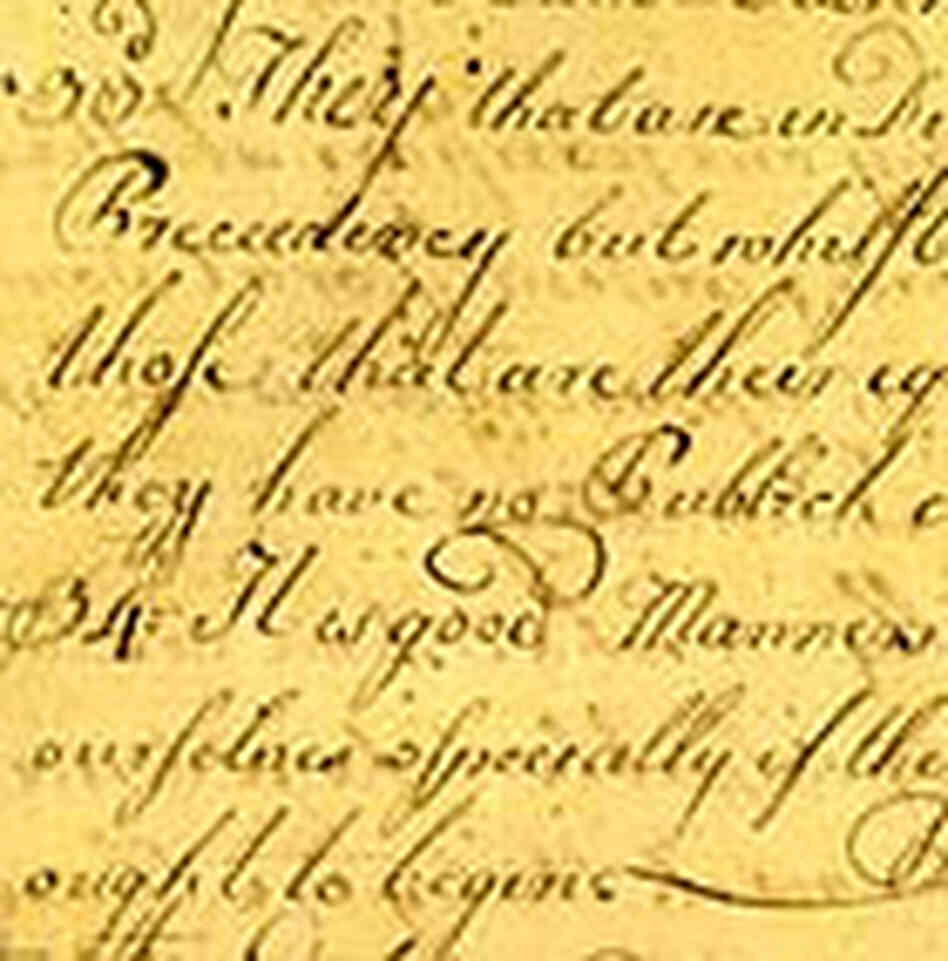 33 They that are in
Preceedency but whilst
those that are their eq
they have no Publick c
34 It is good Manners
ourselves especially if the
ought to begin